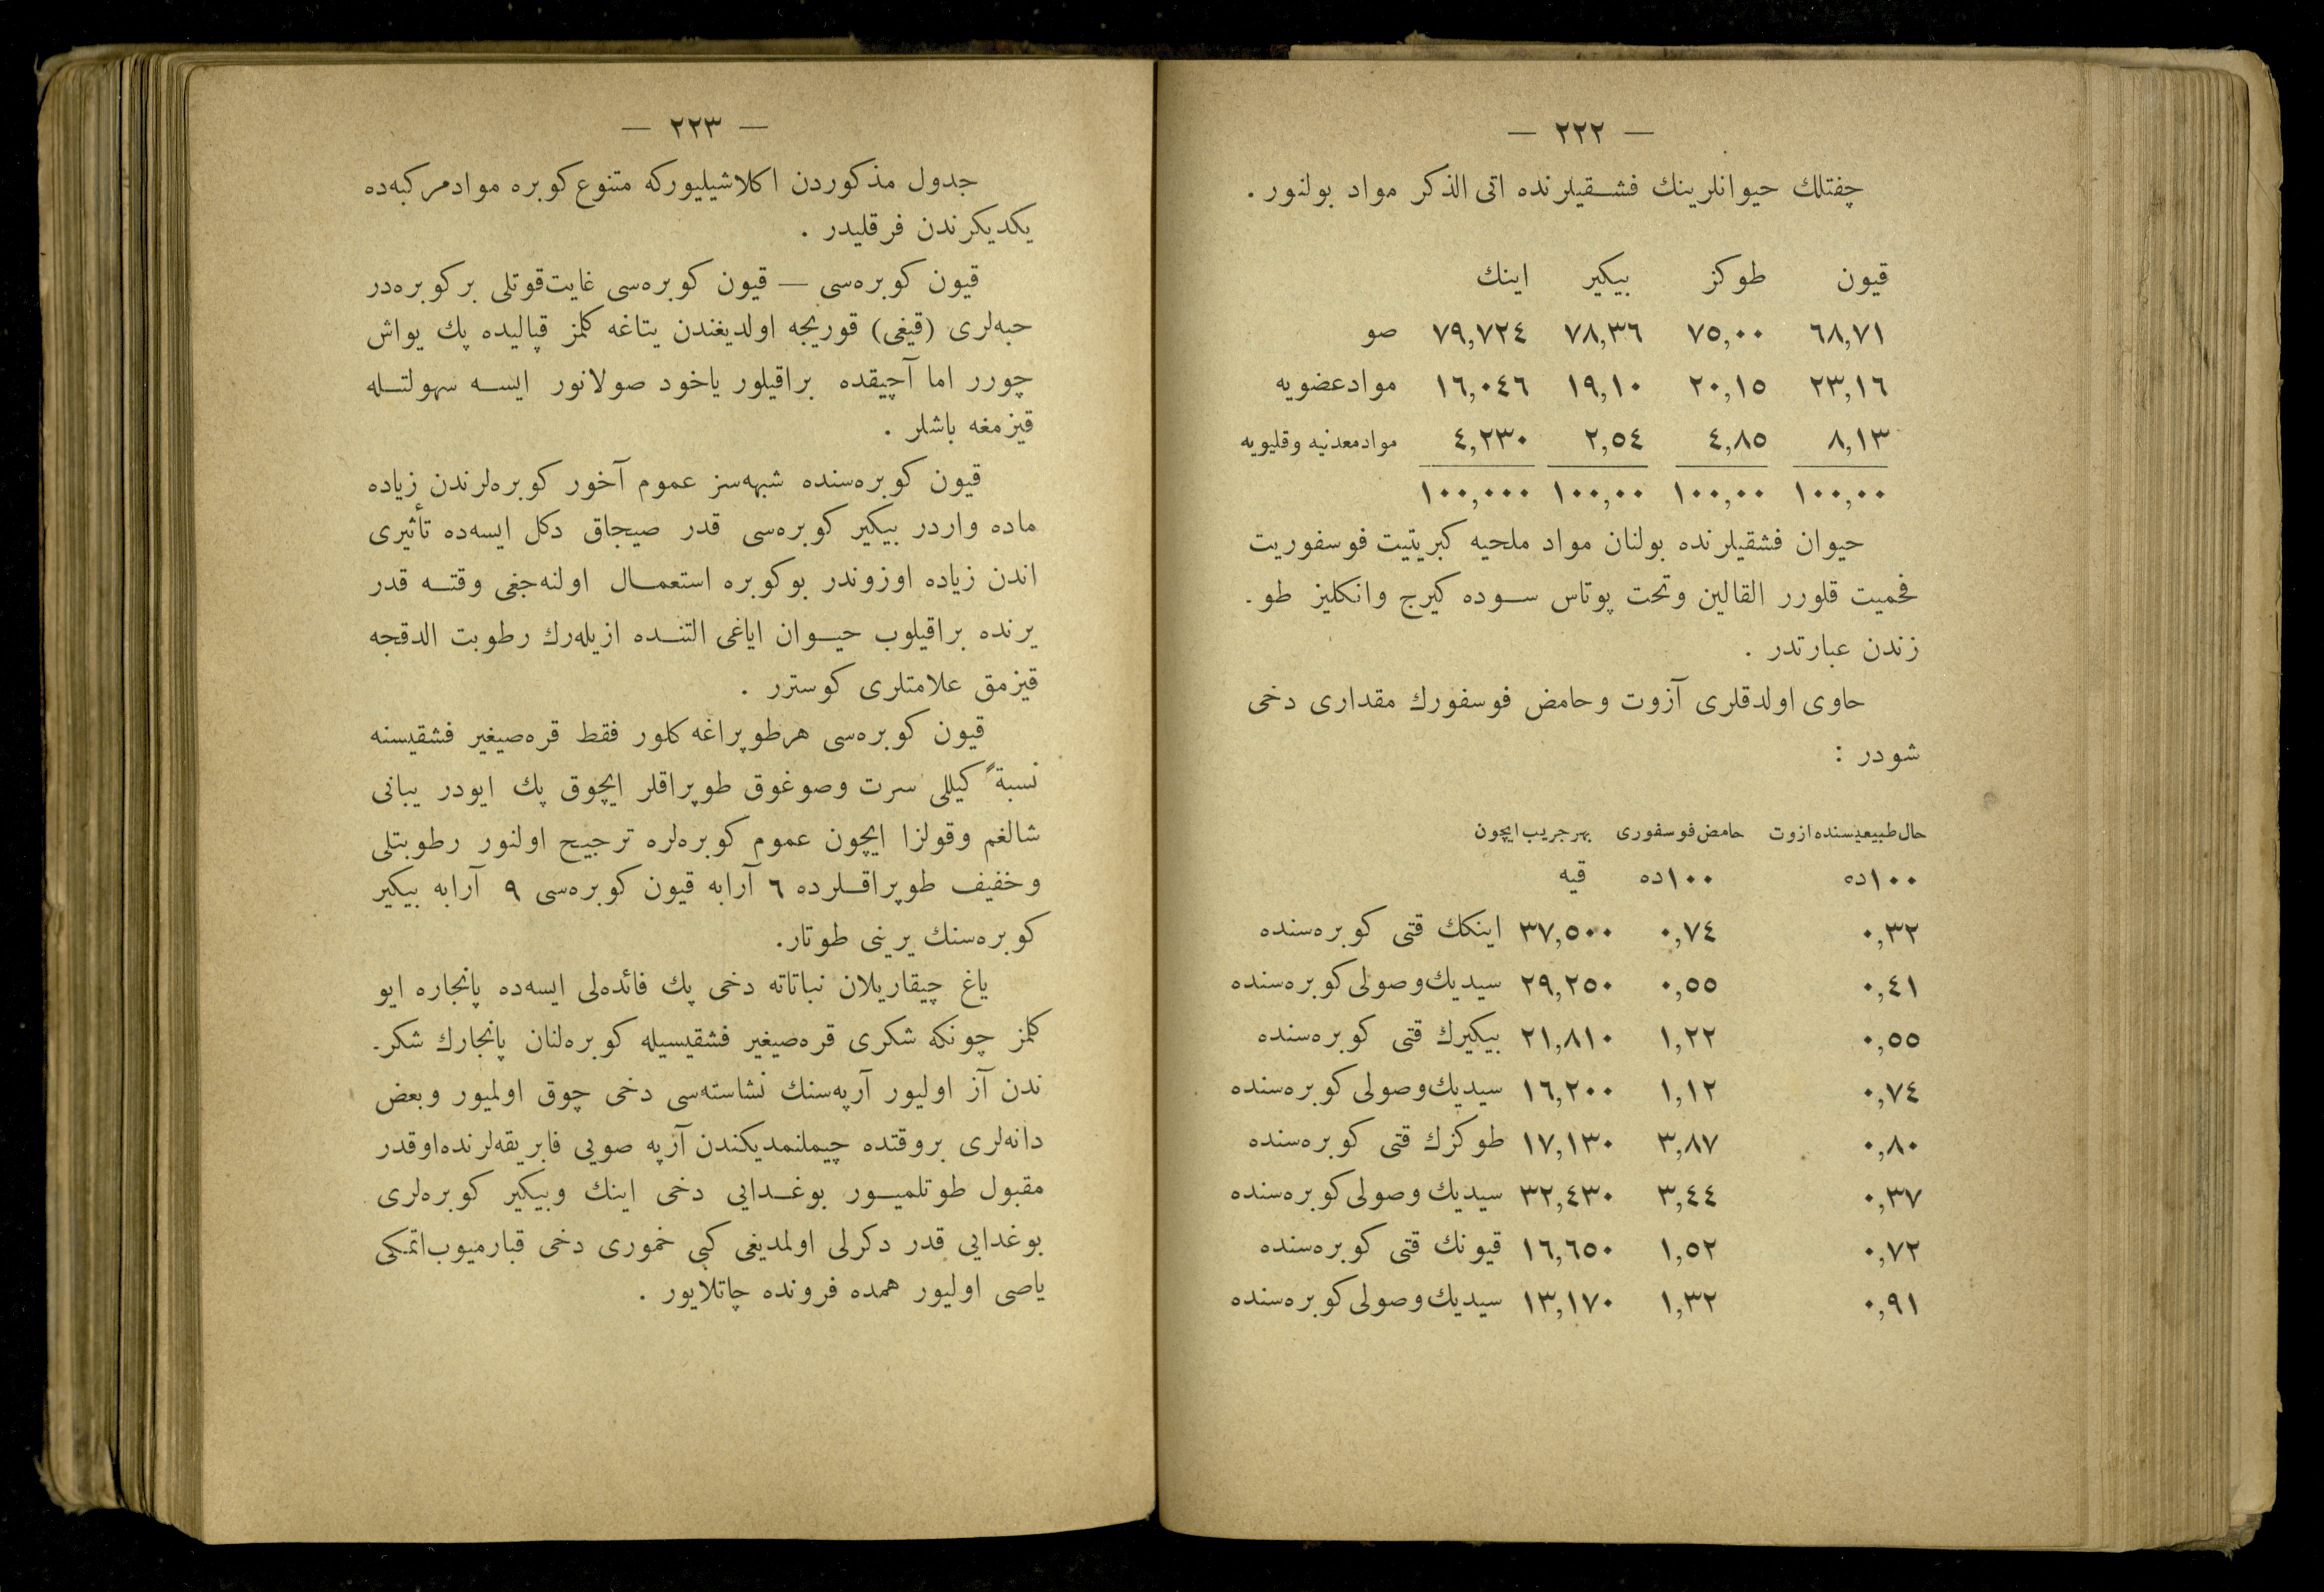 — ٢٢٢ —
چفتلك حیوانلرینك فشقیلرنده اتی الذكر مواد بولنور .
قیون طوكز بیكیر اینك
٦٨,٧١ ٧٥,٠٠ ٧٨,٣٦ ٧٩,٧٢٤ صو
٢٣,١٦ ٢٠,١٥ ١٩,١٠ ١٦,٠٤٦ موادعضویه
٨,١٣ ٤,٨٥ ٢,٥٤ ٤,٢٣٠ موادمعدنیه وقلیویه
١٠٠,٠٠ ١٠٠,٠٠ ١٠٠,٠٠ ١٠٠,٠٠٠
حیوان فشقیلرنده بولنان مواد ملحیه كبریتیت فوسفوریت
فحمیت قلورر القالین وتحت پوتاس سوده كیرج وانكلیز طو-
زندن عبارتدر .
حاوی اولدقلری آزوت وحامض فوسفورك مقداری دخی
شودر :
حال طبیعیسنده ازوت حامض فوسفوری بهر جریب ایچون
١٠٠ده ١٠٠ده قیه
٠,٣٢ ٠,٧٤ ٣٧,٥٠٠ اینكك قتی كوبره‌سنده
٠,٤١ ٠,٥٥ ٢٩,٢٥٠ سیدیك وصولی كوبره‌سنده
٠,٥٥ ١,٢٢ ٢١,٨١٠ بیكیرك قتی كوبره‌سنده
٠,٧٤ ١,١٢ ١٦,٢٠٠ سیدیك وصولی كوبره‌سنده
٠,٨٠ ٣,٨٧ ١٧,١٣٠ طوكزك قتی كوبره‌سنده
٠,٣٧ ٣,٤٤ ٣٢,٤٣٠ سیدیك وصولی كوبره‌سنده
٠,٧٢ ١,٥٢ ١٦,٦٥٠ قیونك قتی كوبره‌سنده
٠,٩١ ١,٣٢ ١٣,١٧٠ سیدیك وصولی كوبره‌سنده
— ٢٢٣ —
جدول مذكوردن اكلاشیلیوركه متنوع كوبره موادمركبه‌ده
یكدیكرندن فرقلیدر .
قیون كوبره‌سی — قیون كوبره‌سی غایت‌قوتلی بر كوبره‌در
حبه‌لری (قیغی) قوریجه اولدیغندن یتاغه كلمز قپالیده پك یواش
چورر اما آچیقده براقیلور یاخود صولانور ایسه سهولتله
قیزمغه باشلر .
قیون كوبره‌سنده شبهه‌سز عموم آخور كوبره‌لرندن زیاده
ماده واردر بیكیر كوبره‌سی قدر صیجاق دكل ایسه‌ده تأثیری
اندن زیاده اوزوندر بوكوبره استعمال اولنه‌جغی وقته قدر
یرنده براقیلوب حیوان ایاغی التنده ازیله‌رك رطوبت الدقجه
قیزمق علامتلری كوسترر .
قیون كوبره‌سی هرطوپراغه كلور فقط قره‌صیغیر فشقیسنه
نسبةً كیللی سرت وصوغوق طوپراقلر ایچوق پك ایودر یبانی
شالغم وقولزا ایچون عموم كوبره‌لره ترجیح اولنور رطوبتلی
وخفیف طوپراقلرده ٦ آرابه قیون كوبره‌سی ٩ آرابه بیكیر
كوبره‌سنك یرینی طوتار.
یاغ چیقاریلان نباتاته دخی پك فائده‌لی ایسه‌ده پانجاره ایو
كلمز چونكه شكری قره‌صیغیر فشقیسیله كوبره‌لنان پانجارك شكر-
ندن آز اولیور آرپه‌سنك نشاسته‌سی دخی چوق اولمیور وبعض
دانه‌لری بروقتده چیملنمدیكندن آرپه صویی فابریقه‌لرنده‌اوقدر
مقبول طوتلمیور بوغدایی دخی اینك وبیكیر كوبره‌لری
بوغدایی قدر دكرلی اولمدیغی كبی خموری دخی قبارمیوب‌اتمكی
یاصی اولیور همده فرونده چاتلایور .